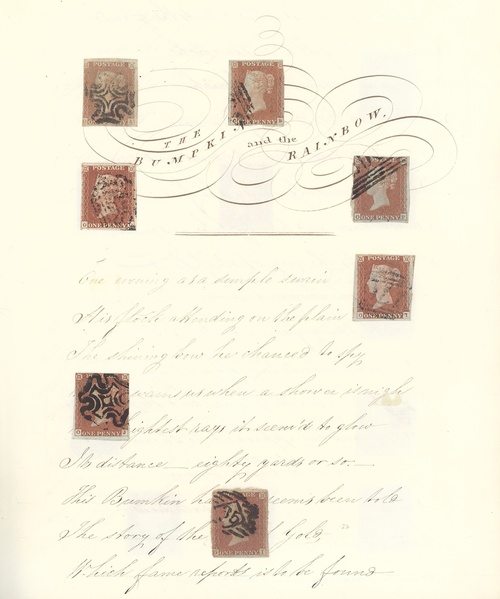 POSTAGE
ONE PENNY
POSTAGE
ONE PENNY
THE
BUMPKIN
and the
RAINBOW.
POSTAGE
ONE PENNY
ONE PENNY
POSTAGE
ONE PENNY
One evening as a simple swain
His flock attending on the plain
The shining bow he chanced to spy
warns us when a shower is nigh
brightest rays it seem'd to glow
Its distance — eighty yards or so. —
This Bumkin had seems been told
The story of the Gold,
Which fame reports is to be found
POSTAGE
ONE PENNY
ONE PENNY